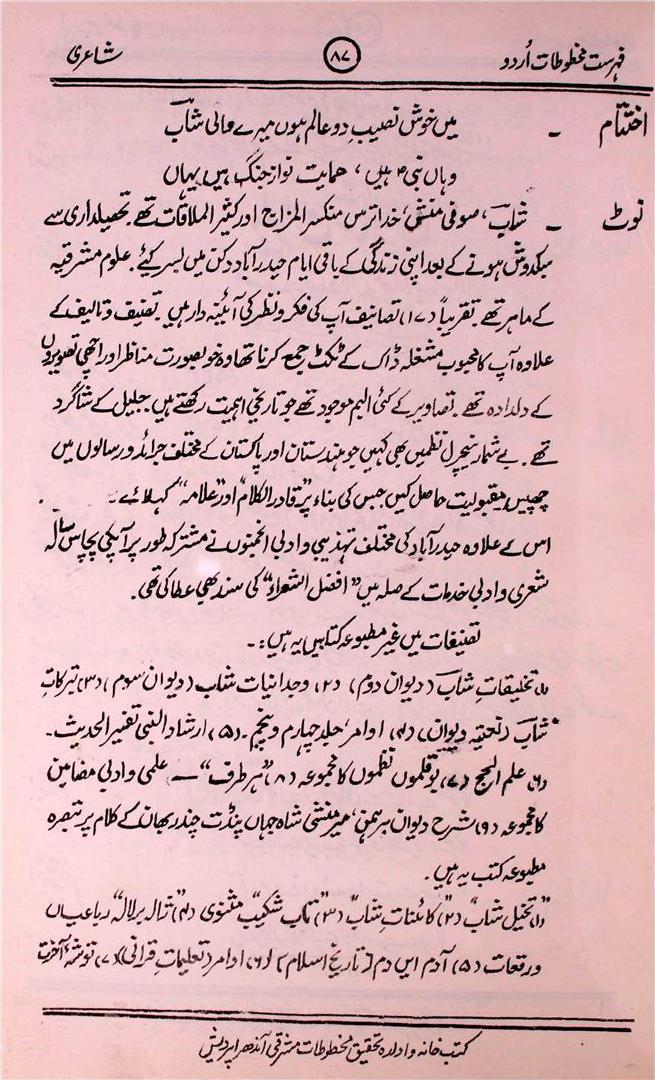 فہرست مخطوطات اُردو ۸۷ شاعری
اختتام - میں خوش نصیبِ دو عالم ہوں میرے والی شابؔ
وہاں نبیؐ ہیں، حمایت نواز جنگ ہیں یہاں
نوٹ - شابؔ، صوفی منش، خدا ترس منکسر المزاج اور کثیر الملاقات تھے۔ تحصیلداری سے
سبکدوش ہونے کے بعد اپنی زندگی کے باقی ایام حیدرآباد دکن میں بسر کیے۔ علوم مشرقیہ
کے ماہر تھے۔ تقریباً (۱۷) تصانیف آپ کی فکر و نظر کی آئینہ دار ہیں۔ تصنیف و تالیف کے
علاوہ آپ کا محبوب مشغلہ ڈاک کے ٹکٹ جمع کرنا تھا وہ خوبصورت مناظر اور اچھی تصویروں
کے دلدادہ تھے۔ تصاویر کے کئی البم موجود تھے جو تاریخی اہمیت رکھتے ہیں۔ جلیل کے شاگرد
تھے۔ بے شمار نیچرل نظمیں بھی کہیں جو ہندستان اور پاکستان کے مختلف جرائد و رسالوں میں
چھپیں مقبولیت حاصل کیں جس کی بناء پر "قادر الکلام" اور "علامہ" کہلائے۔
اس کے علاوہ حیدرآباد کی مختلف تہذیبی و ادبی انجمنوں نے مشترکہ طور پر آپکی پچاس سالہ
شعری و ادبی خدمات کے صلہ میں "افضل الشعراء" کی سند بھی عطا کی تھی۔
تصنیفات میں غیر مطبوعہ کتابیں یہ ہیں:۔
(۱) تخلیقاتِ شابؔ (دیوان دوم) (۲) وجدانیات شابؔ (دیوان سوم) (۳) تبرکاتِ
شابؔ (نعتیہ دیوان) (۴) اوامر، جلد چہارم و پنجم۔ (۵) ارشاد النبی تفسیر الحدیث۔
(۶) علم الحج (۷) بوقلموں نظموں کا مجموعہ (۸) "ہر طرف" — علمی و ادبی مضامین
کا مجموعہ (۹) شرح دیوان برہمن، میر منشی شاہ جہاں پنڈت چندر بھان کے کلام پر تبصرہ
مطبوعہ کتب یہ ہیں۔
(۱) "تخیل شاب" (۲) "کائنات شاب" (۳) "تاب شکیب" مثنوی (۴) "ژال بر لالہ" رباعیاں
و رقعات (۵) آدم ایں دم [تاریخ اسلام] (۶) اوامر (تعلیمات قرانی) (۷) توشہ آخرت
کتب خانہ و ادارہ تحقیق مخطوطات مشرقی آندھرا پردیش